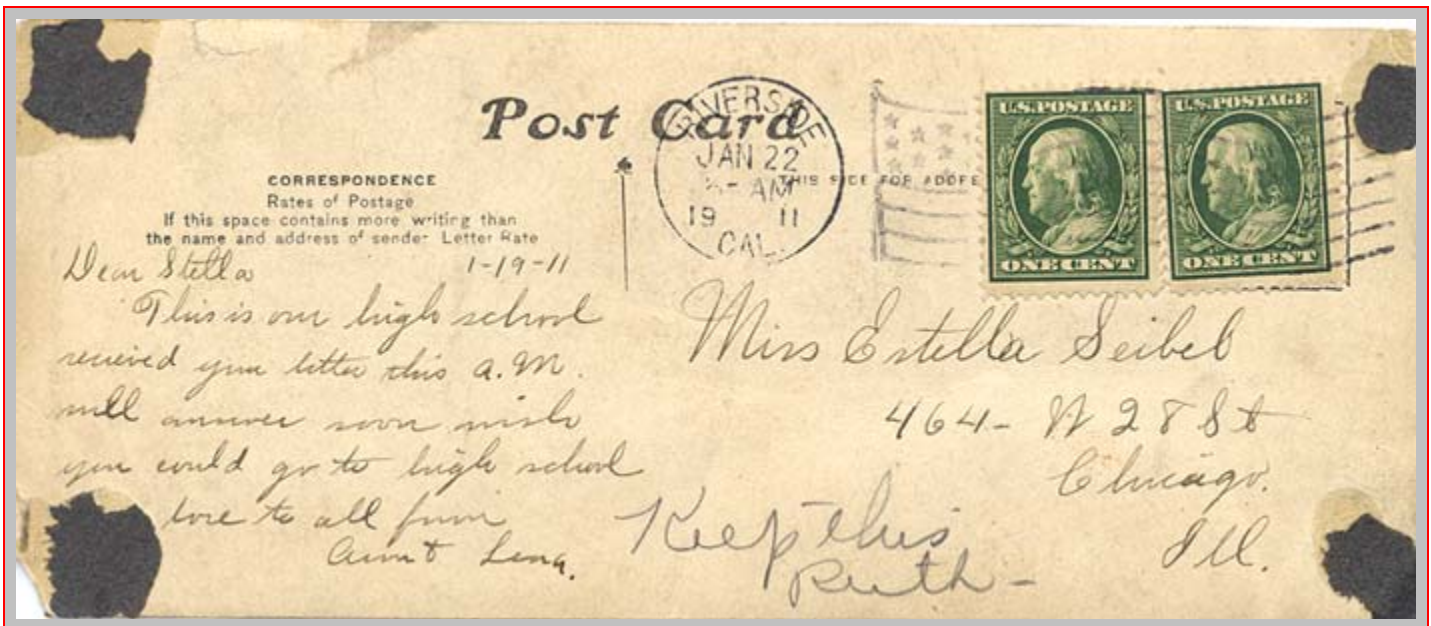 Post Card
RIVERSIDE
JAN 22
AM
19 11
CAL.
THIS SIDE FOR ADDRE
U.S.POSTAGE
ONE CENT
U.S.POSTAGE
ONE CENT
CORRESPONDENCE
Rates of Postage
If this space contains more writing than
the name and address of sender Letter Rate
Dear Stella 1-19-11
This is our high school
recieved your letter this A.M.
will answer soon wish
you could go to high school
love to all from
Aunt Lena.
Miss Estella Seibel
464- W 28 St
Chicago.
Ill.
Keep this
Ruth-